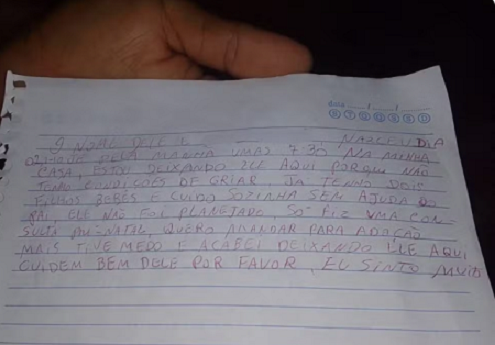 O NOME DELE É NASCEU DIA
PELA MANHÃ UMAS 7:30 NA MINHA
CASA, ESTOU DEIXANDO ELE AQUI PORQUE NÃO
TENHO CONDIÇOES DE CRIAR JA TENHO DOIS
FILHOS BEBÊS E CUIDO SOZINHA SEM AJUDA DO
PAI, ELE NÃO FOI PLANEJADO, SÓ FIZ UMA CON
SULTA PRÉ-NATAL, QUERO MANDAR PARA ADOÇÃO
MAIS TIVE MEDO E ACABEI DEIXANDO ELE AQUI
CUIDEM BEM DELE POR FAVOR, EU SINTO MUITO